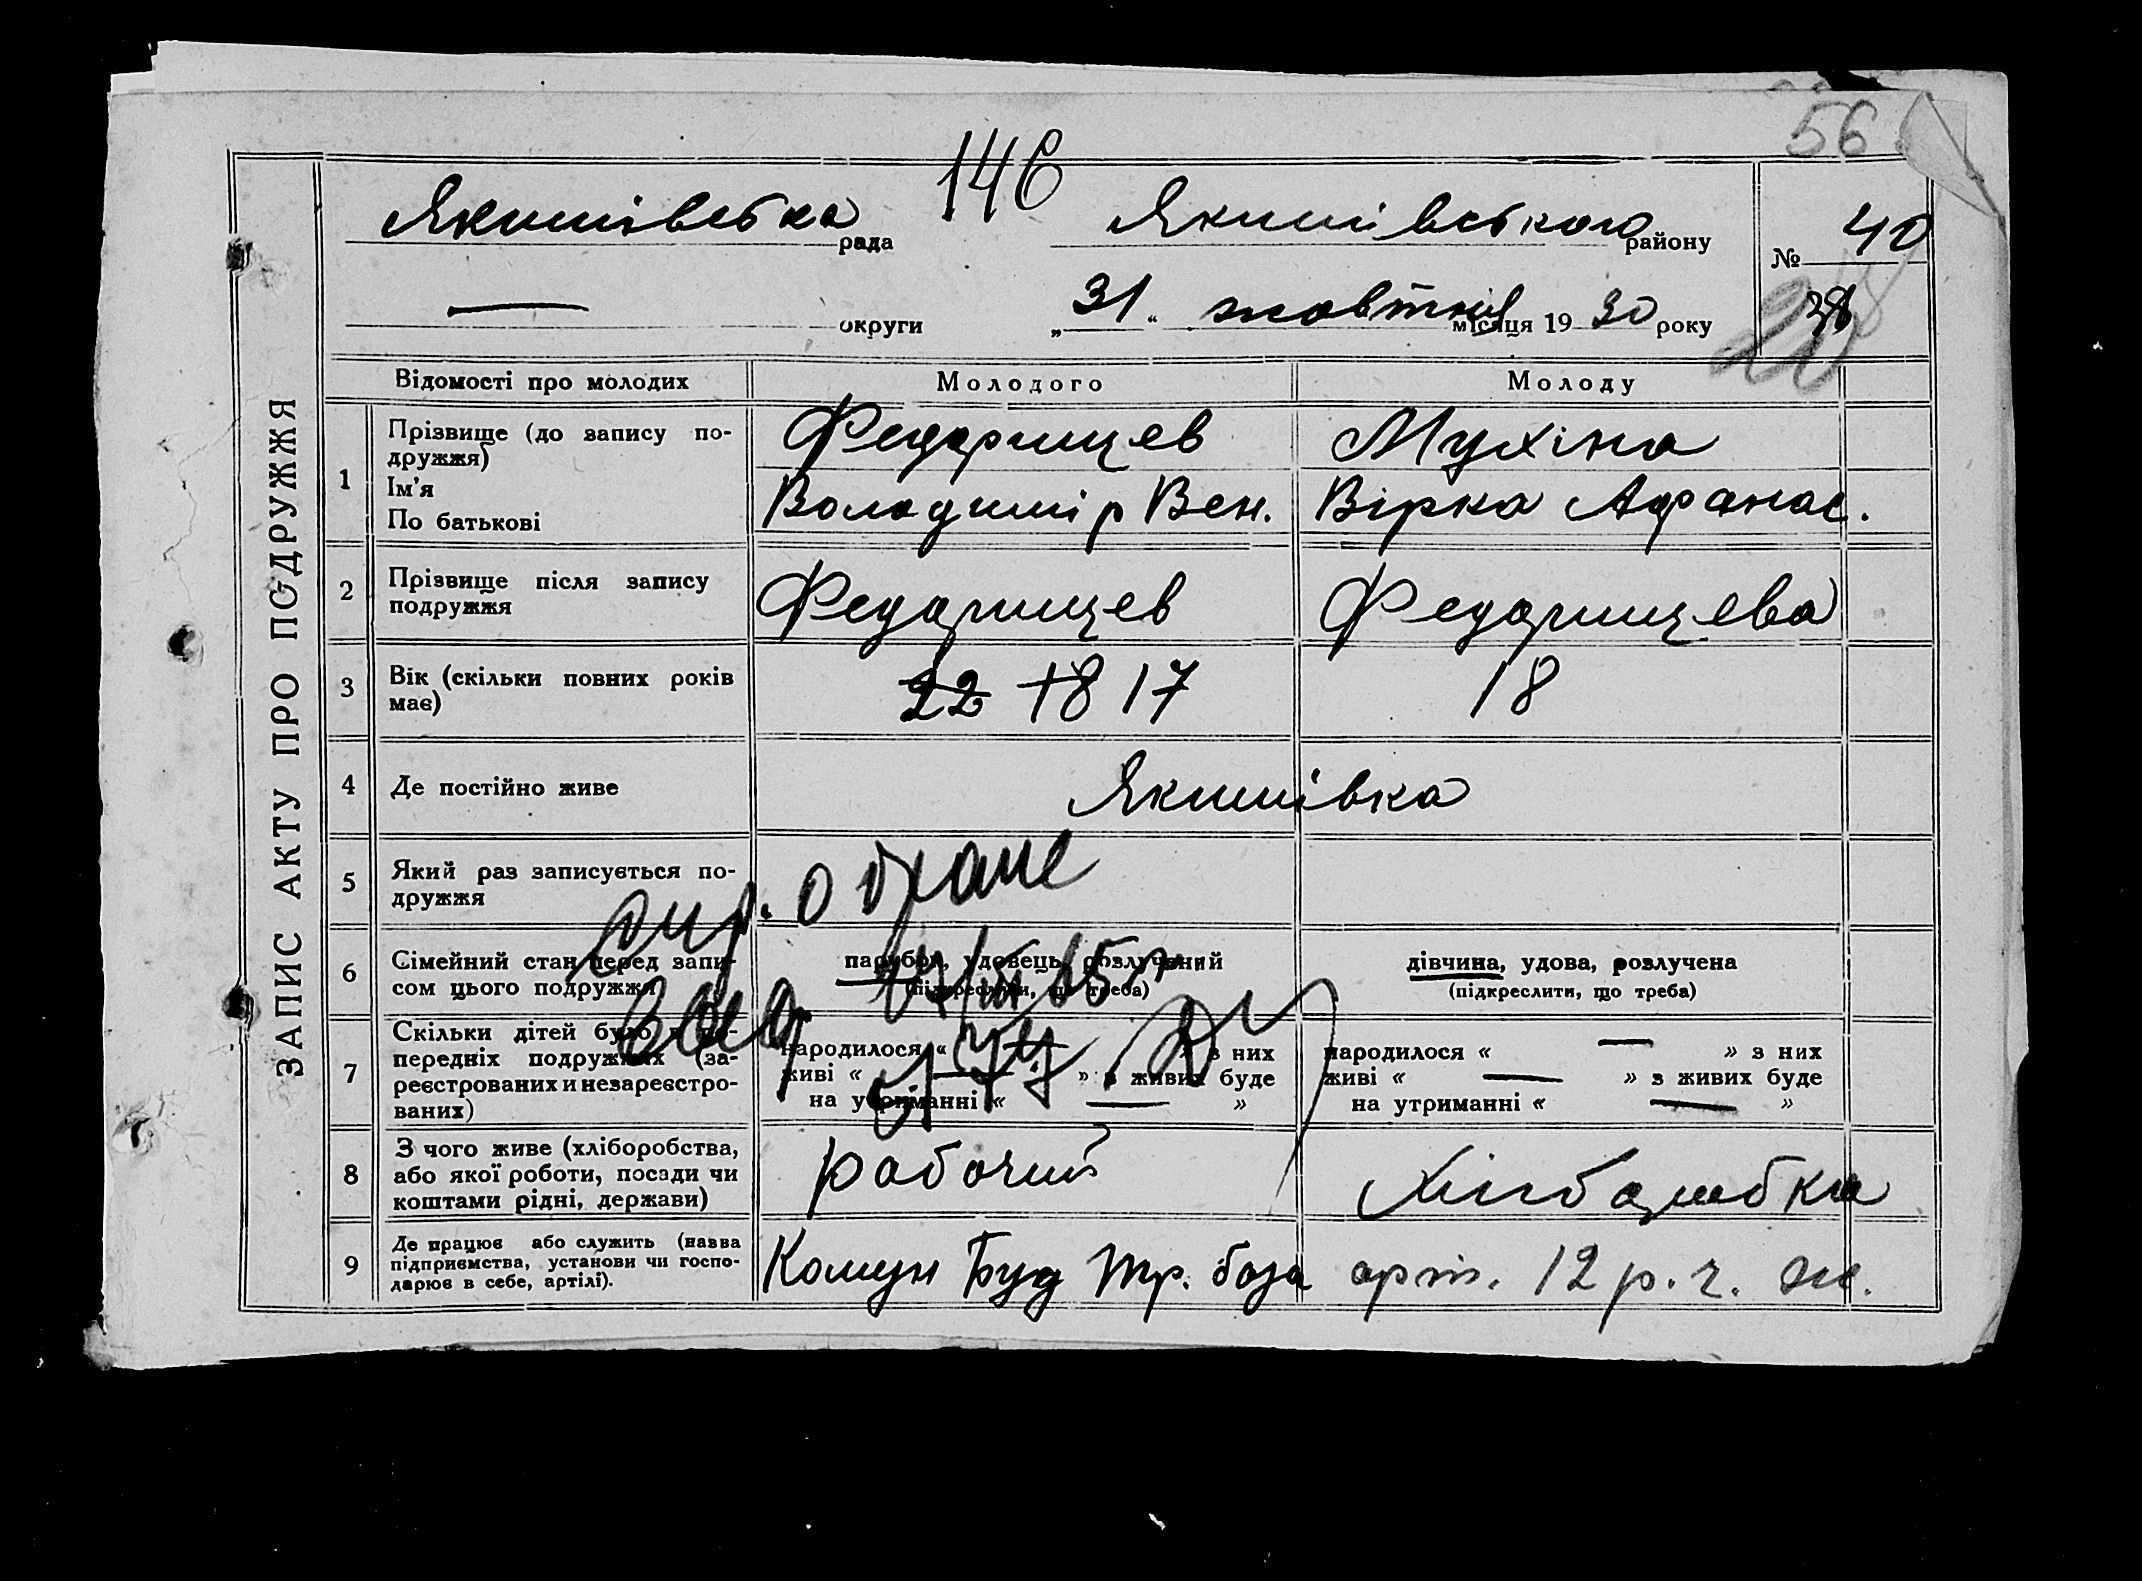 56
146
Якимівська рада Якимівського району № 40
— округи „31“ жовтня місяця 1930 року
ЗАПИС АКТУ ПРО ПОДРУЖЖЯ
Відомості про молодих Молодого Молоду
1 Прізвище (до запису по-
дружжя) Федарищев Мухіна
Ім'я
По батькові Володимір Вен. Вірка Афанас.
2 Прізвище після запису
подружжя Федарищев Федарищева
3 Вік (скільки повних років
має) 22 18 17 18
4 Де постійно живе Якимівка
5 Який раз записується по-
дружжя
о браке
6 Сімейний стан перед запи-
сом цього подружжя парубок, удовець, розлучений дівчина, удова, розлучена
(підкреслити, що треба) (підкреслити, що треба)
7 Скільки дітей було в по-
передніх подружжях (за-
реєстрованих и незареєстро-
ваних)
народилося « — » з них народилося « — » з них
живі « — » з живих буде живі « — » з живих буде
на утриманні « — » на утриманні « — »
8 З чого живе (хліборобства,
або якої роботи, посади чи
коштами рідні, держави) рабочий
9 Де працює або служить (назва
підприємства, установи чи госпо-
дарює в себе, артілі). Комун Буд тр. база арт. 12 р. г. ж.